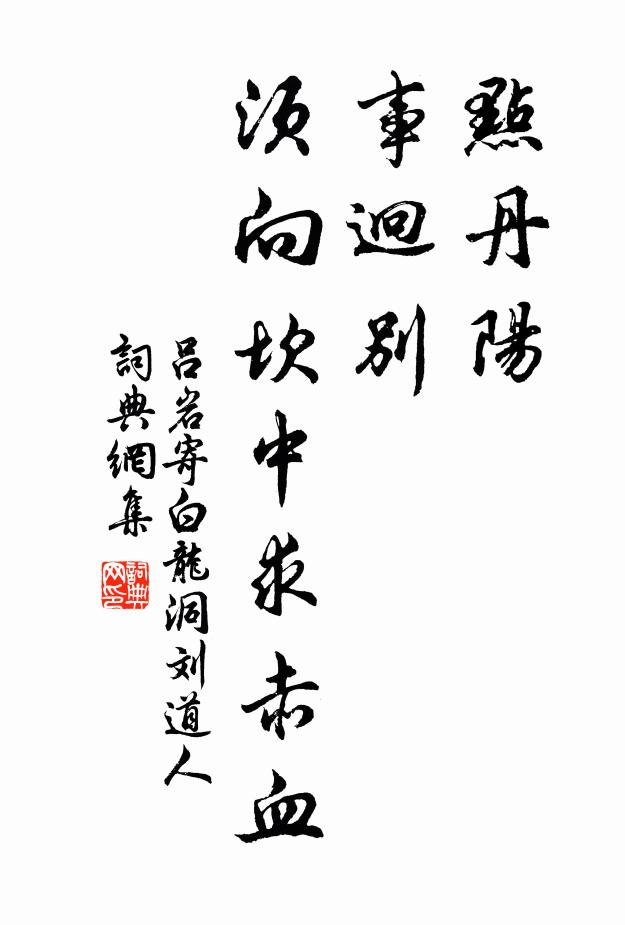 點丹陽
事迴別
須向坎中求赤血
吕岩寄白龍洞刘道人
詞典網集
詞典網印